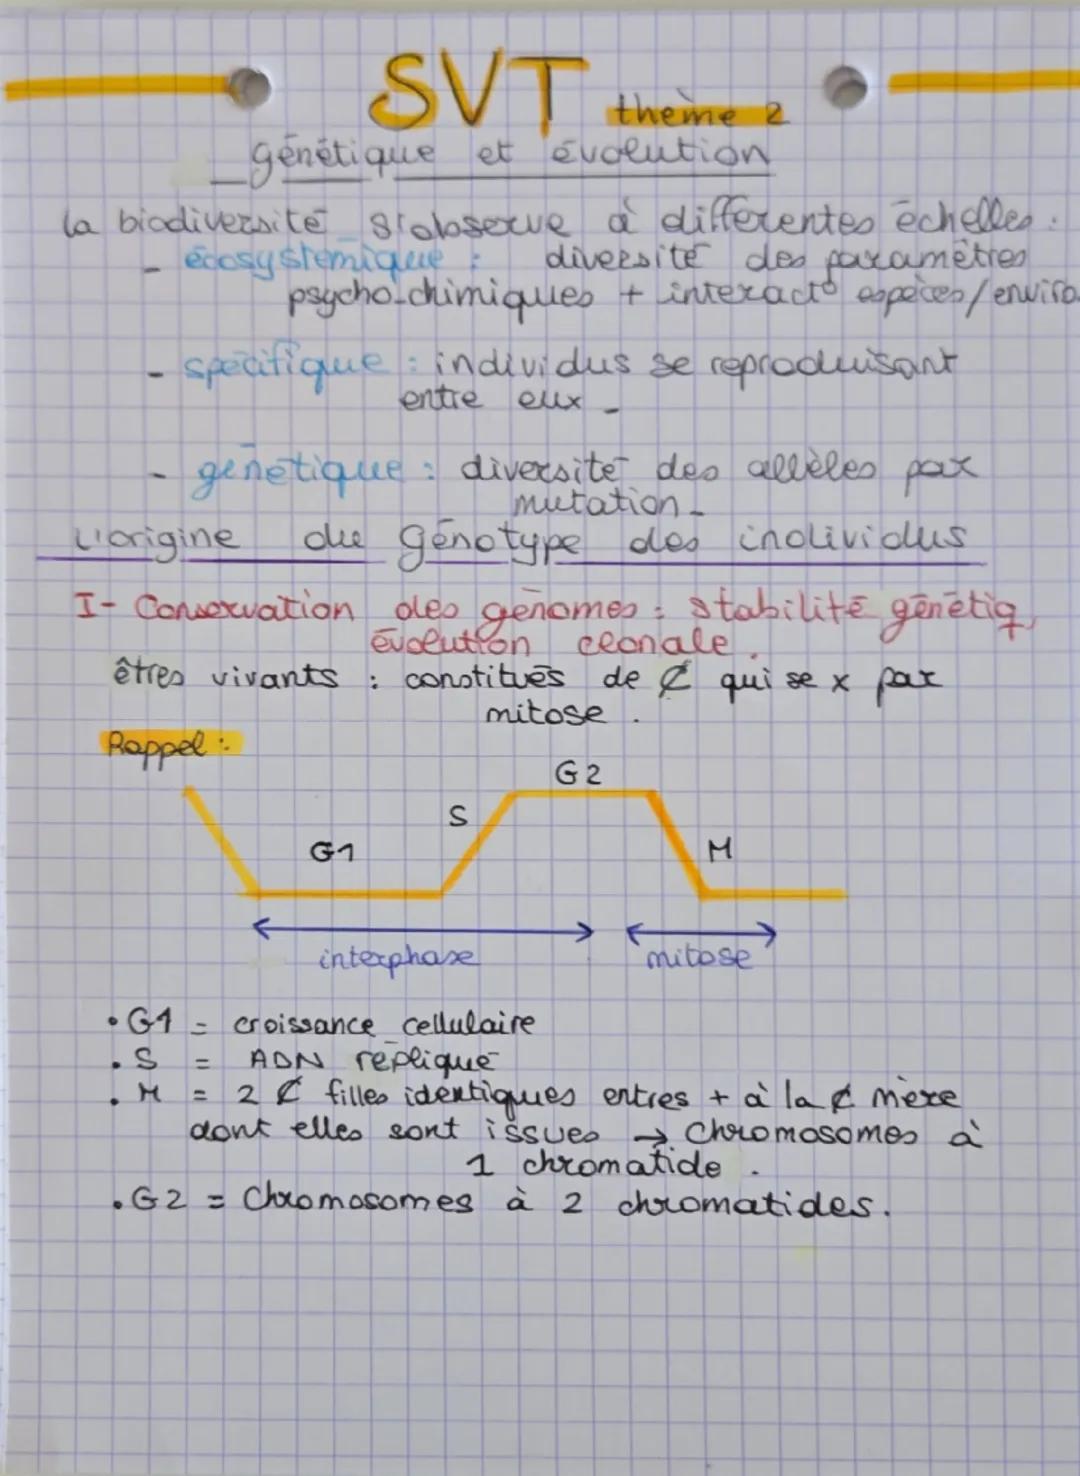 SVT thème 2
génétique et évolution
la biodiversité s'observe à différentes échelles :
- écosystémique : diversité des paramètres
psycho-chimiques + interact° espèces/enviro.
- spécifique : individus se reproduisant
entre eux -
- génétique : diversité des allèles par
mutation -
L'origine du génotype des individus
I- Conservation des génomes : stabilité génétiq,
évolution clonale.
êtres vivants : constitués de ₵ qui se x par
mitose .
Rappel :
G2
S
G1
M
interphase
mitose
• G1 = croissance cellulaire
• S = ADN répliqué
• M = 2 ₵ filles identiques entres + à la ₵ mère
dont elles sont issues → Chromosomes à
1 chromatide .
• G2 = Chromosomes à 2 chromatides.